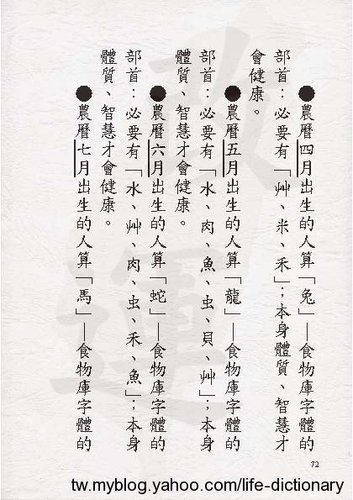 ●農曆四月出生的人算「兔」—食物庫字體的
部首：必要有「艸、米、禾」；本身體質、智慧才
會健康。
●農曆五月出生的人算「龍」—食物庫字體的
部首：必要有「水、肉、魚、虫、貝、艸」；本身
體質、智慧才會健康。
●農曆六月出生的人算「蛇」—食物庫字體的
部首：必要有「水、艸、肉、虫、禾、魚」；本身
體質、智慧才會健康。
●農曆七月出生的人算「馬」—食物庫字體的
改運
72
tw.myblog.yahoo.com/life-dictionary